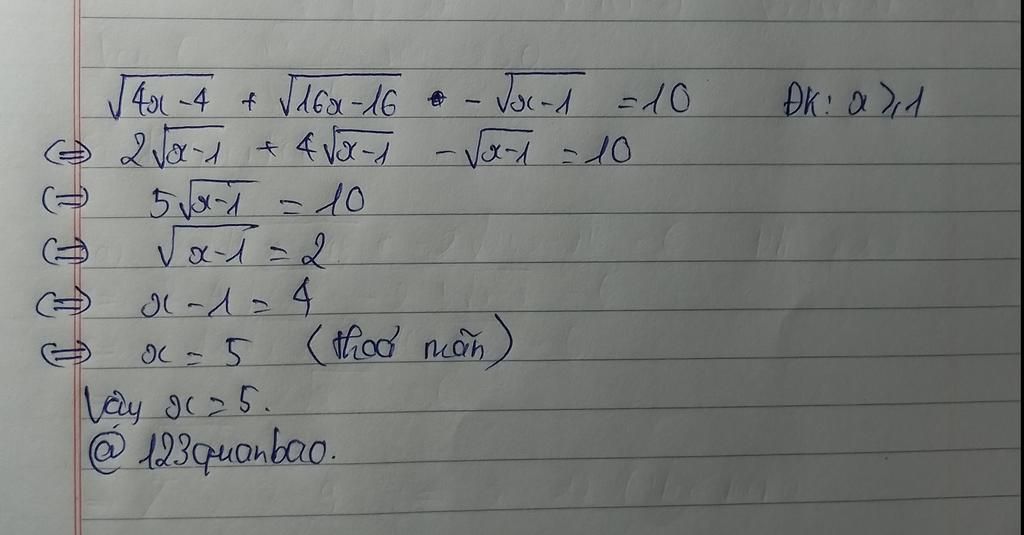 √(4x-4) + √(16x-16) - √(x-1) = 10 ĐK: x ⩾ 1
(=) 2√(x-1) + 4√(x-1) - √(x-1) = 10
(=) 5√(x-1) = 10
(=) √(x-1) = 2
(=) x - 1 = 4
(=) x = 5 (thoả mãn)
Vậy x = 5.
@ 123quanbao.